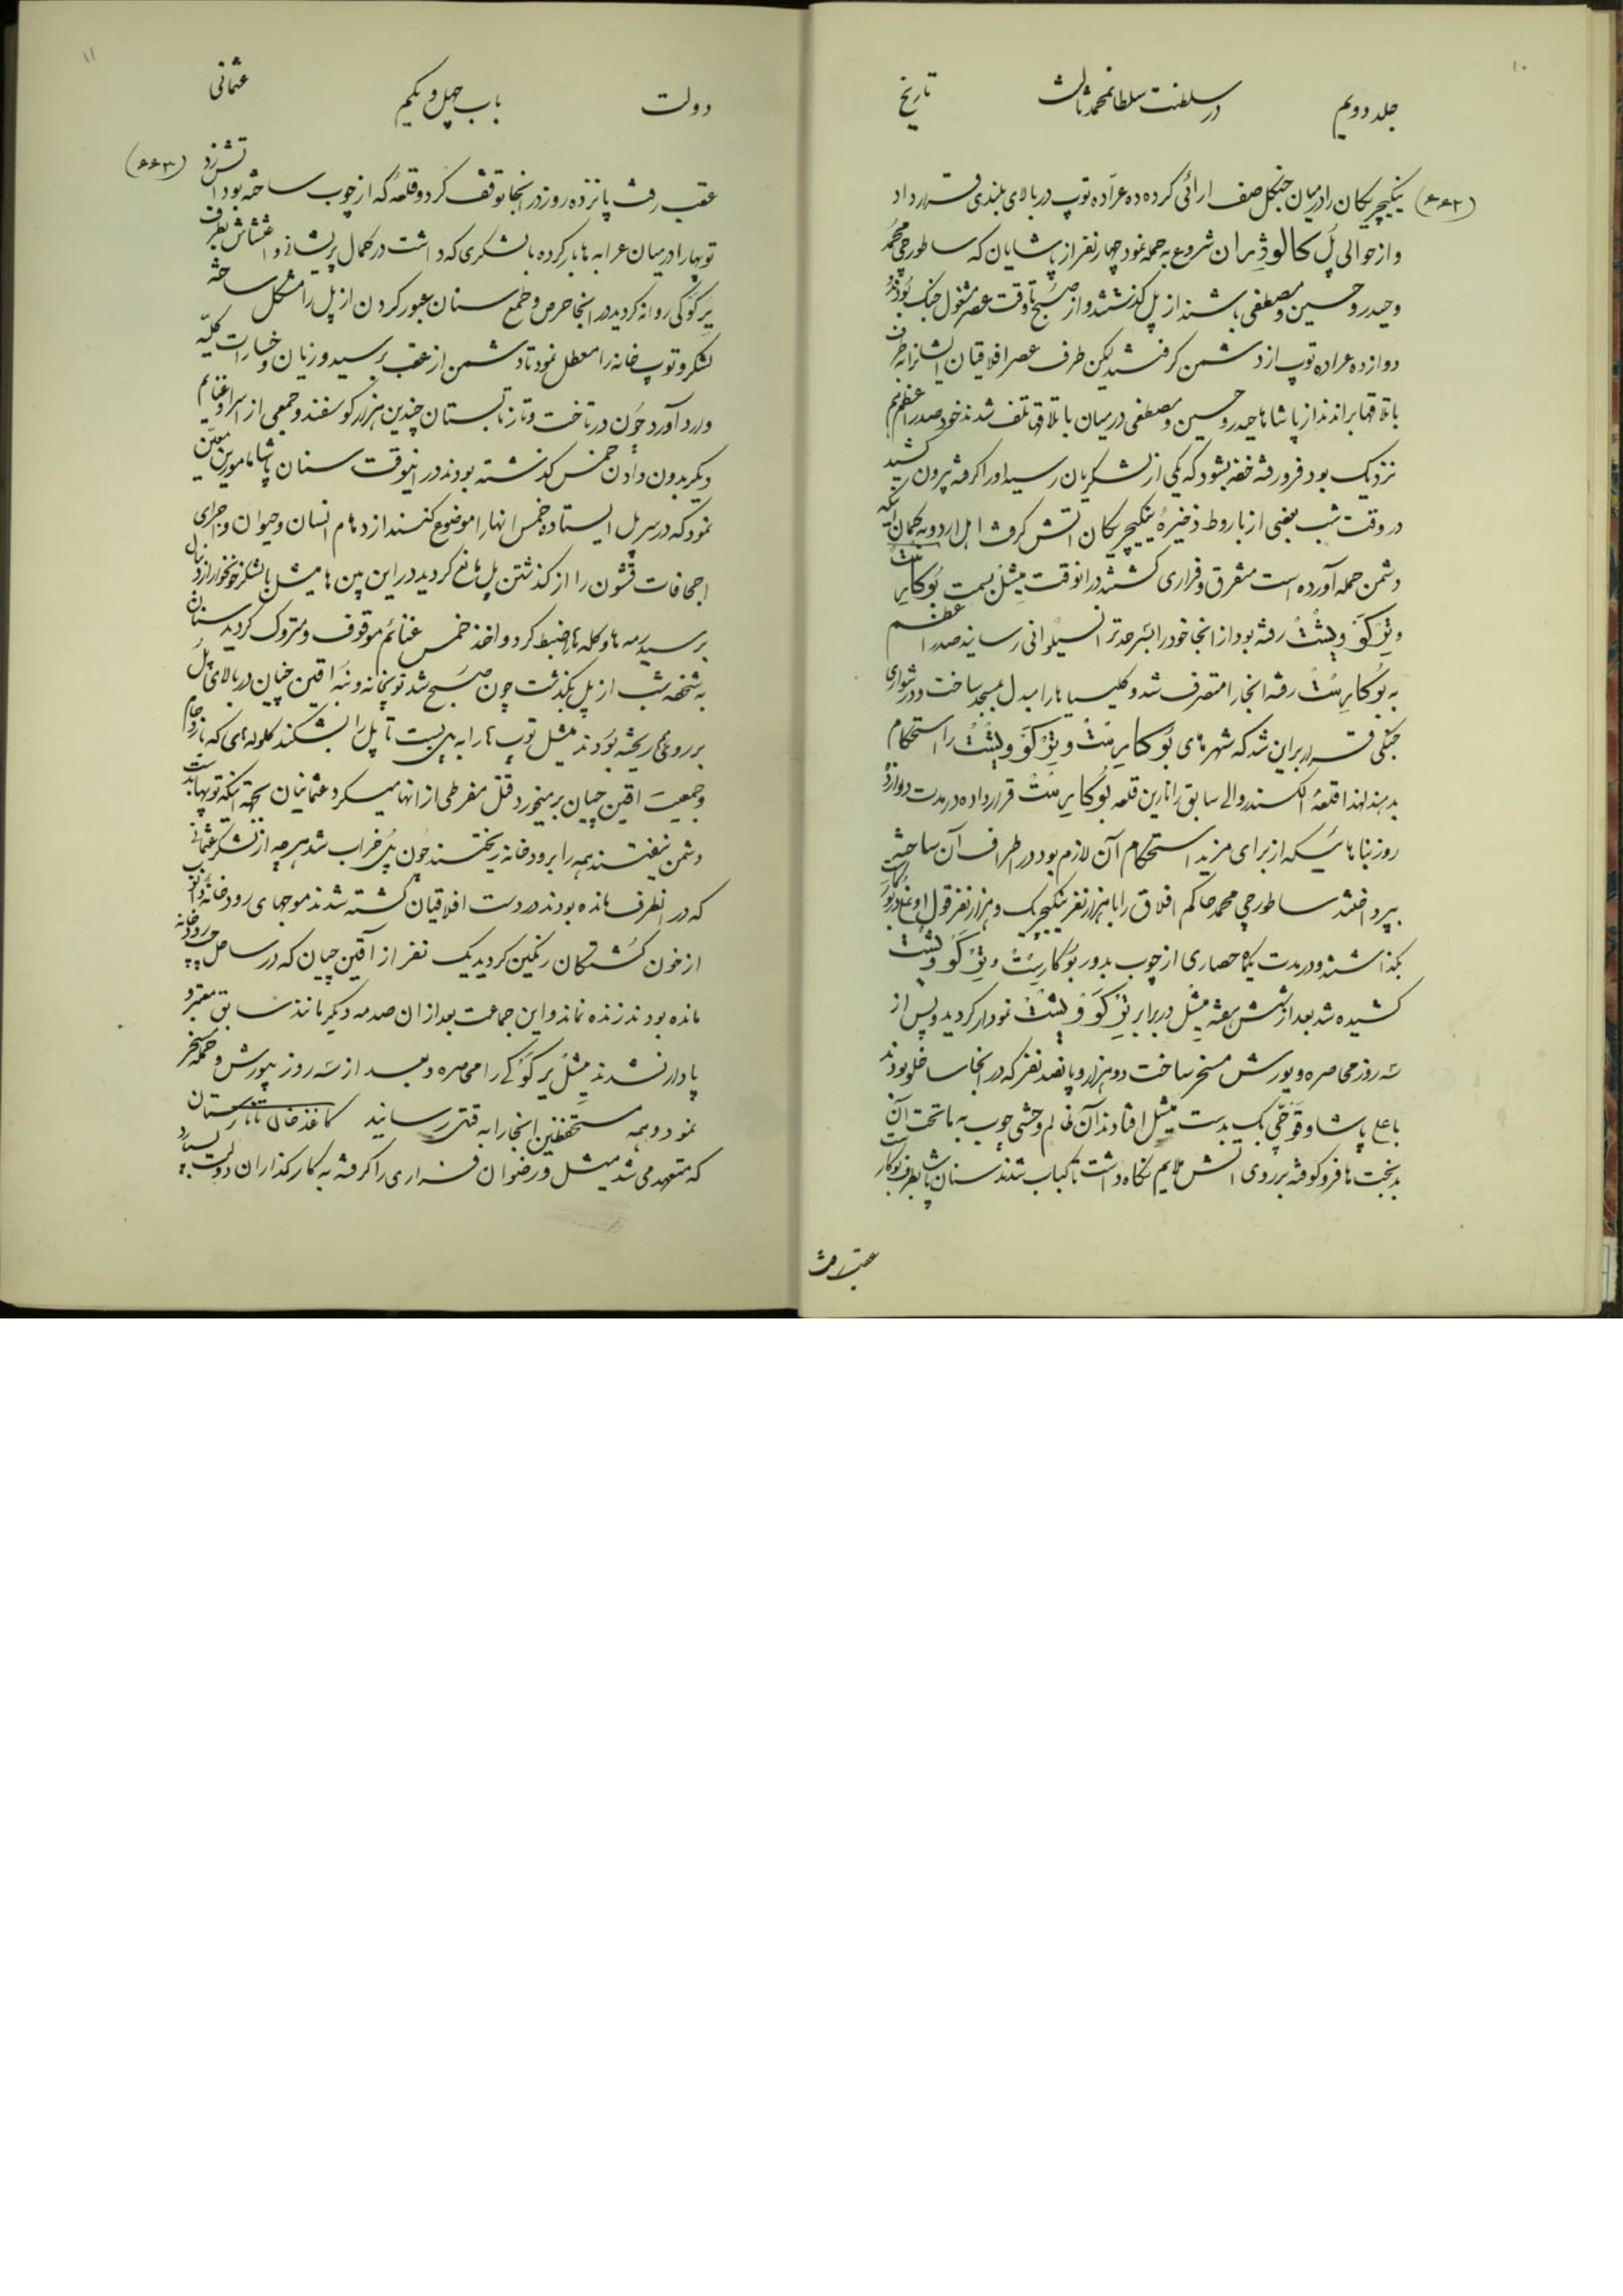 ۱۰
جلد دویم در سلطنت سلطانمحمد ثالث تاریخ
(۴۴۲) ینکیچریکان را در میان جنکل صف ارائی کرده ده عرّاده توپ در بالای بلندی قرار داد
و از حوالی پُل کالوژِبران شروع به حمله نمود چهار نفر از پاشایان که ساطورچی محمد
و حیدر و حسین و مصطفی باشند از پل کذشتند و از صبح تا وقت عصر مشغول جنک بودند
دوازده عراده توپ از دشمن کرفتند لیکن طرف عصر افلاقیان ایشانرا بطرف
باتلاقها براندند از پاشاها حیدر و حسین و مصطفی در میان باتلاق تلف شدند خود صدر اعظم هم
نزدیک بود فرو رفته خفه بشود که یکی از لشکریان رسید اورا کرفته بیرون کشید
در وقت شب بعضی از باروط ذخیرهٔ ینکیچریکان اتش کرفت اهل اردو به کمان اینکه
دشمن حمله آورده است متفرق و فراری کشتند در انوقت میشل بسمت بُوکارِست
و تِرکَوویشت رفته بود از انجا خود را بسرحد ترانسیلوانی رسانید صدر اعظم
به بُوکارِست رفته انجا را متصرف شد و کلیسیاها را مبدل بمسجد ساخت و در شورای
جنکی قرار بر این شد که شهر های بُوکارِست و تِرکَوویشت را استحکام
بدهند لهذا قلعهٔ الکسندر والی سابق را نارین قلعه بُوکارِست قرار داده در مدت دوازده
روز بناهائیکه از برای مزید استحکام آن لازم بود در اطراف آن ساخته
بپرداختند ساطورچی محمد حاکم افلاق را با هزار نفر ینکیچریک و هزار نفر قول اوغلی در بُوکارست
بکذاشتند و در مدت یکماه حصاری از چوب بدور بُوکارِست و تِرکَوویشت
کشیده شد بعد از شش هفته میشل در برابر تِرکَوویشت نمودار کردید و پس از
سه روز محاصره و یورش مسخر ساخت دو هزار و پانصد نفر که در انجا ساخلو بودند
با علی پاشا و قوجّی بک بدست میشل افتادند آن ظالم وحشی چوب به ماتحت آن
بدبخت ها فرو کوفته بر روی اتش ملایم نکاه داشت تا کباب شدند سنان پاشا بطرف بوکارست
عقب رفت
۱۱
دولت باب چهل و یکم عثمانی
(۴۴۳)
عقب رفت پانزده روز در انجا توقف کرد و قلعهٔ که از چوب ساخته بود اتش زد
توپها را در میان عرابه ها بار کرده با لشکری که داشت در کمال پریشانی و اغتشاش بطرف
یَرکَوکی روانه کردید در انجا حرص و طمع سنان عبور کردن از پل را مشکل ساخته
لشکر و توپخانه را معطل نمود تا دشمن از عقب برسید و زیان و خسارات کلیّه
وارد آورد چون در تاخت و تاز تابستان چندین هزار کوسفند و جمعی از اسرا و غنایم
دیکر بدون دادن خمس کذشته بودند در اینوقت سنان پاشا مامورین معیّن
نمود که در سر پل ایستاده خمس انها را موضوع کنند ازدهام انسان و حیوان و اجرای
اجحافات قشون را از کذشتن پل مانع کردید در این بین ها میشل با لشکر خونخوار از دنبال
برسید رمه ها و کله ها را ضبط کرد و اخذ خمس غنائم موقوف و متروک کردید سنان
به شخصه شب از پل بکذشت چون صبح شد توپخانه و بنه اقین چیان در بالای پل
بر روی هم ریخته بودند میشل توپ ها را به پل بست تا پل را بشکند کلوله های که بازدحام
و جمعیت اقین چیان بر میخورد قتل مفرطی از انها میکرد عثمانیان بجهة اینکه توپها بدست
دشمن نیفتند همه را برودخانه ریختند چون پل خراب شد هر چه از لشکر عثمانی
که در انطرف مانده بودند در دست افلاقیان کشته شدند موجهای رودخانهٔ دانوب
از خون کشتکان رنکین کردید یک نفر از آقین چیان که در ساحل چپ رودخانه
مانده بودند زنده نماند و این جماعت بعد از ان صدمه دیکر مانند سابق معتبر و
پادار نشدند میشل یَرکَوکی را محاصره و بعد از سه روز بیورش و حمله مسخر
نمود و همه مستحفظین انجا را به قتل رسانید کاغذ خان تاتارستان
که متعهد می شد میشل و رضوان فراری را کرفته به کارکذاران دولت بسپارد